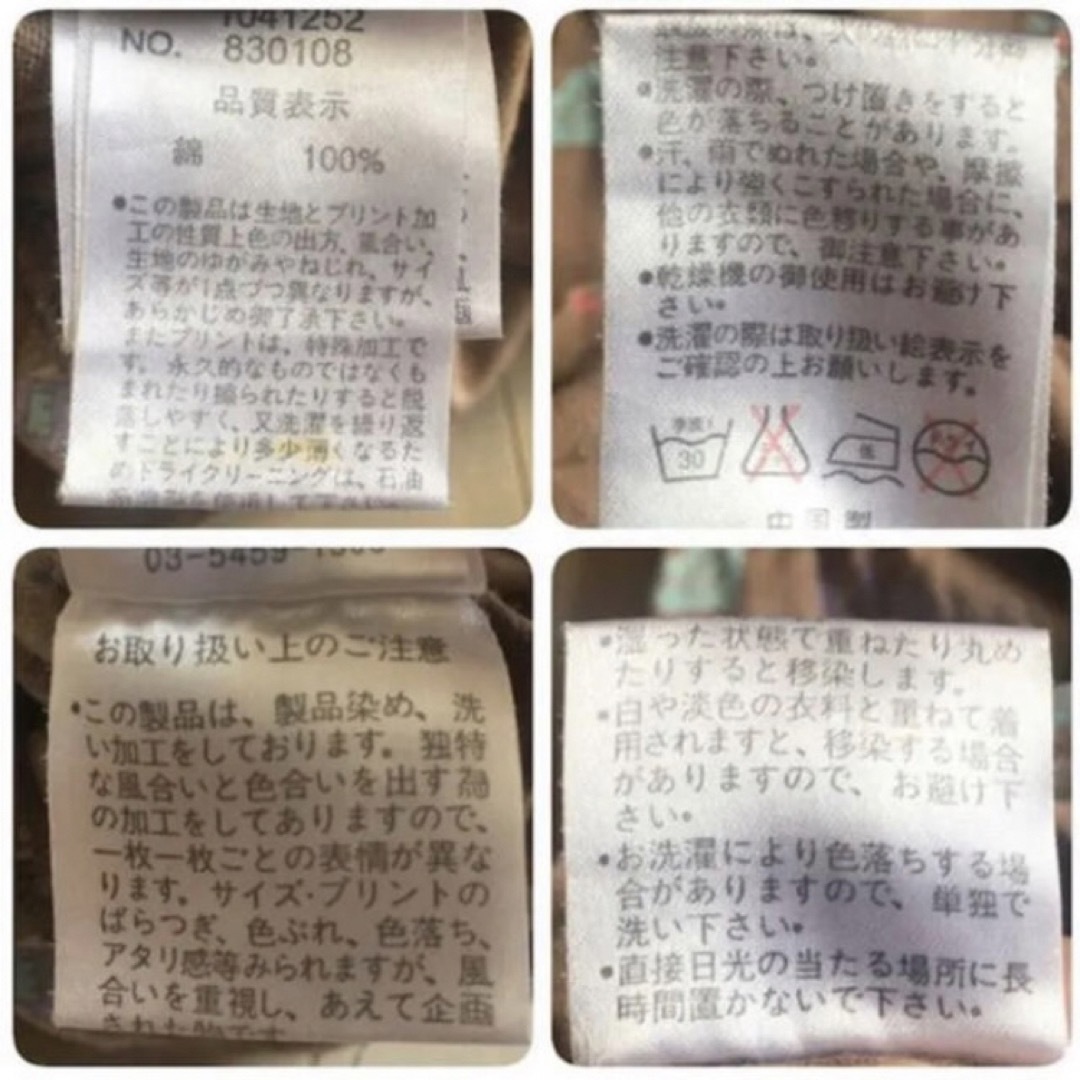 1041252
NO. 830108
品質表示
綿 100%
•この製品は生地とプリント加
工の性質上色の出方、風合い、
生地のゆがみやねじれ、サイ
ズ等が1点づつ異なりますが、
あらかじめ御了承下さい。
またプリントは、特殊加工で
す。永久的なものではなくも
まれたり擦られたりすると脱
落しやすく、又洗濯を繰り返
すことにより多少薄くなるた
めドライクリーニングは、石油
注意下さい。
•洗濯の際、つけ置きをすると
色が落ちることがあります。
•汗、雨でぬれた場合や、摩擦
により強くこすられた場合に、
他の衣類に色移りする事があ
りますので、御注意下さい。
•乾燥機の御使用はお避け下
さい。
•洗濯の際は取り扱い絵表示を
ご確認の上お願いします。
30 低
中国製
03-5459-
お取り扱い上のご注意
•この製品は、製品染め、洗
い加工をしております。独特
な風合いと色合いを出す為
の加工をしてありますので、
一枚一枚ごとの表情が異な
ります。サイズ・プリントの
ばらつき、色ぶれ、色落ち、
アタリ感等みられますが、風
合いを重視し、あえて企画
された物です
•湿った状態で重ねたり丸め
たりすると移染します。
•白や淡色の衣料と重ねて着
用されますと、移染する場合
がありますので、お避け下
さい。
•お洗濯により色落ちする場
合がありますので、単独で
洗い下さい。
•直接日光の当たる場所に長
時間置かないで下さい。